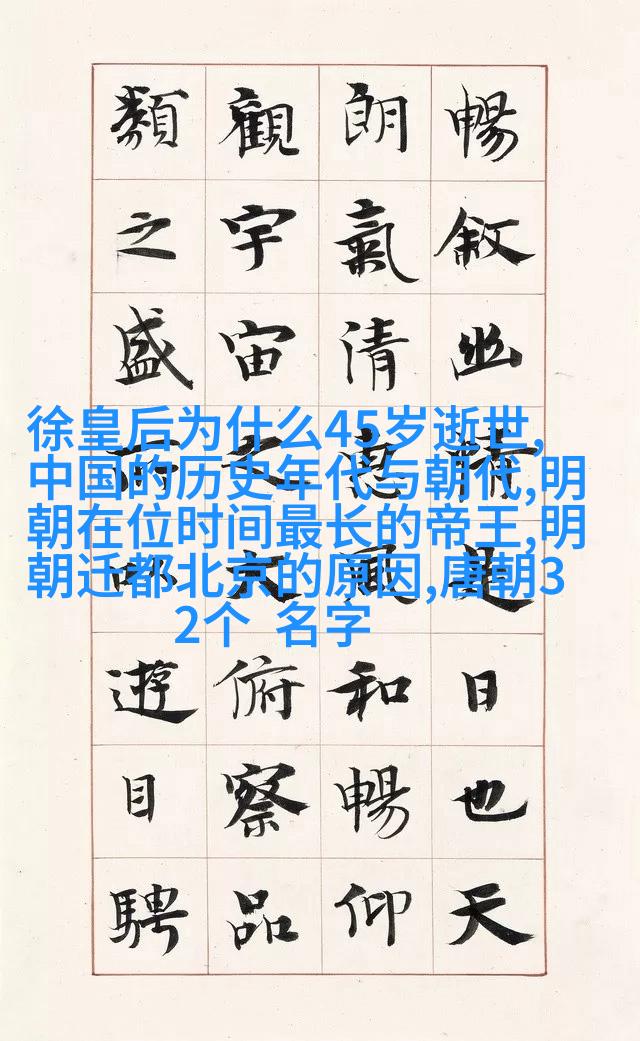 徐皇后为什么45岁逝世,
中国的历史年代与朝代,明
朝在位时间最长的帝王,明
朝迁都北京的原因,唐朝3
2个 名字
暢敘幽情是日也天
朗氣清惠風和暢仰
觀宇宙俯察品
類之盛遊目騁